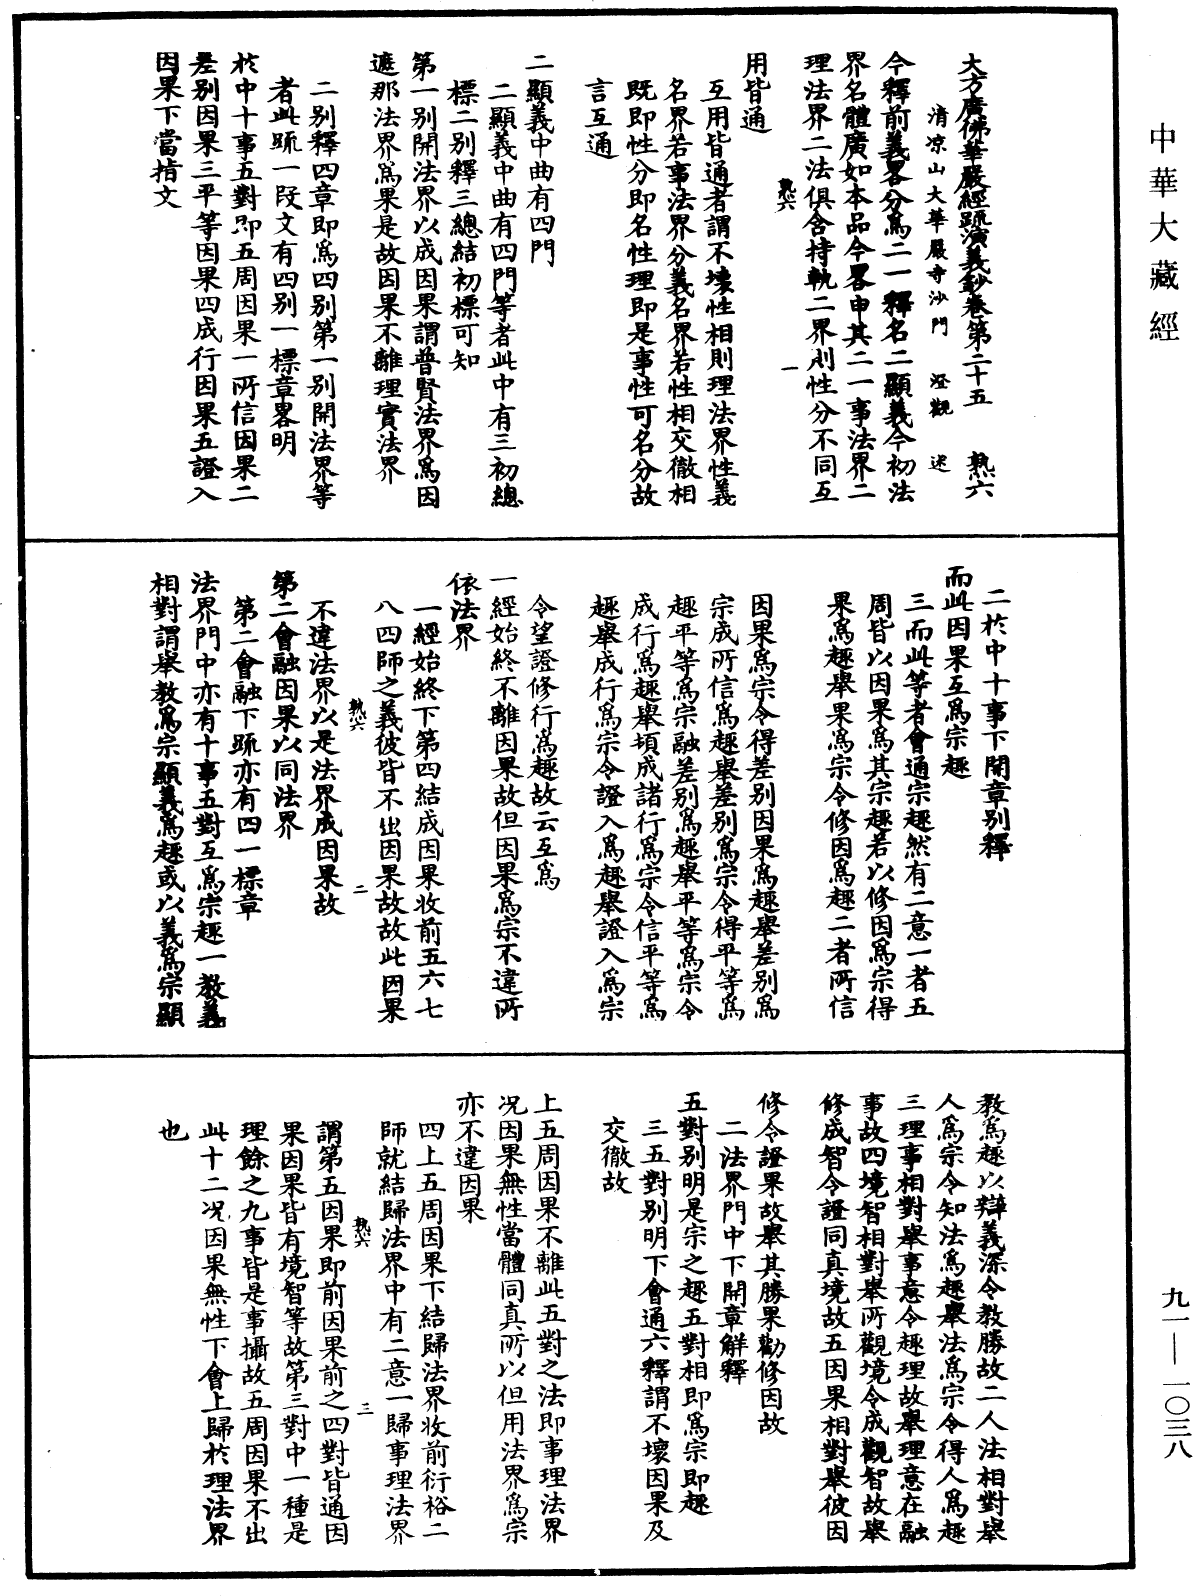 中華大藏經
大方廣佛華嚴經疏演義鈔卷第二十五 熟六
清涼山大華嚴寺沙門 澄觀 述
今釋前義畧分爲二一釋名二顯義今初法
界名體廣如本品今畧申其二一事法界二
理法界二法俱含持軌二界則性分不同互
熟六 一
用皆通
互用皆通者謂不壞性相則理法界性義
名界若事法界分義名界若性相交徹相
既即性分即名性理即是事性可名分故
言互通
二顯義中曲有四門
二顯義中曲有四門等者此中有三初總
標二別釋三總結初標可知
第一別開法界以成因果謂普賢法界爲因
遮那法界爲果是故因果不離理實法界
二別釋四章即爲四別第一別開法界等
者此疏一段文有四別一標章畧明
於中十事五對即五周因果一所信因果二
差別因果三平等因果四成行因果五證入
因果下當指文
二於中十事下開章別釋
而此因果互爲宗趣
三而此等者會通宗趣然有二意一者五
周皆以因果爲其宗趣若以修因爲宗得
果爲趣舉果爲宗令修因爲趣二者所信
因果爲宗令得差別因果爲趣舉差別爲
宗成所信爲趣舉差別爲宗令得平等爲
趣平等爲宗融差別爲趣舉平等爲宗令
成行爲趣舉頓成諸行爲宗令信平等爲
趣舉成行爲宗令證入爲趣舉證入爲宗
令望證修行爲趣故云互爲
一經始終不離因果故但因果爲宗不違所
依法界
一經始終下第四結成因果收前五六七
八四師之義彼皆不出因果故故此因果
熟六 二
不違法界以是法界成因果故
第二會融因果以同法界
第二會融下疏亦有四一標章
法界門中亦有十事五對互爲宗趣一教義
相對謂舉教爲宗顯義爲趣或以義爲宗顯
教爲趣以辯義深令教勝故二人法相對舉
人爲宗令知法爲趣舉法爲宗令得人爲趣
三理事相對舉事意令趣理故舉理意在融
事故四境智相對舉所觀境令成觀智故舉
修成智令證同真境故五因果相對舉彼因
修令證果故舉其勝果勸修因故
二法界門中下開章解釋
五對別明是宗之趣五對相即爲宗即趣
三五對別明下會通六釋謂不壞因果及
交徹故
上五周因果不離此五對之法即事理法界
况因果無性當體同真所以但用法界爲宗
亦不違因果
四上五周因果下結歸法界收前衍裕二
師就結歸法界中有二意一歸事理法界
熟六 三
謂第五因果即前因果前之四對皆通因
果因果皆有境智等故第三對中一種是
理餘之九事皆是事攝故五周因果不出
此十二况因果無性下會上歸於理法界
也
九一—一〇三八